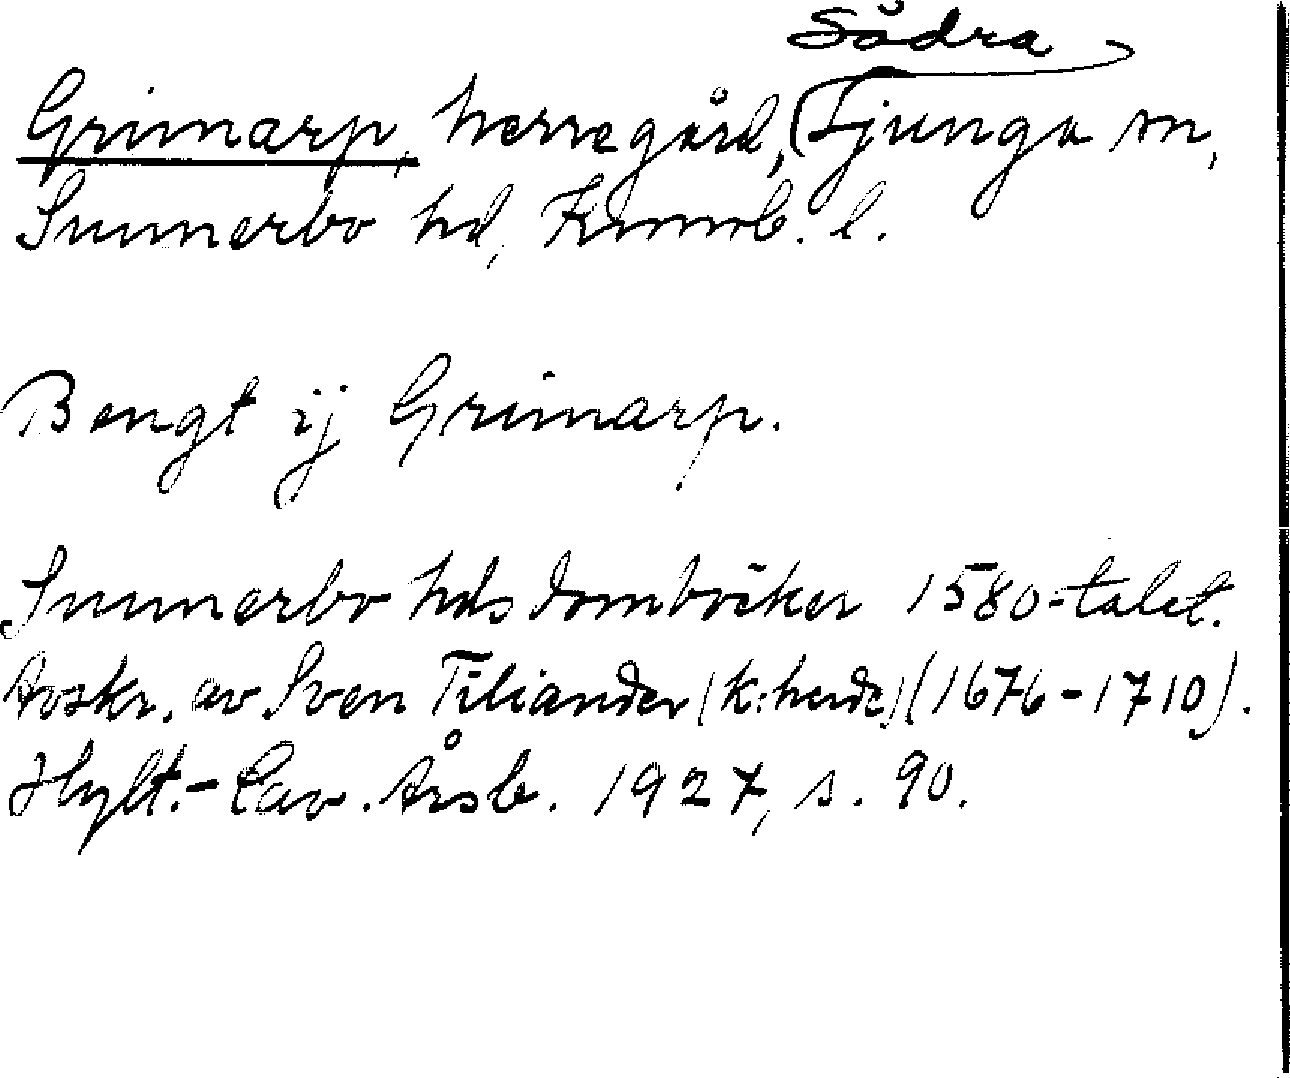 Södra
Grimarp, herregård, Ljunga sn,
Sunnerbo hd, Kronob. l.
Bengt ij Grimarp.
Sunnerbo hds domböcker 1580-talet.
Avskr. av Sven Tiliander (k:herde) (1676-1710).
Hylt.-Cav. Årsb. 1927, s. 90.